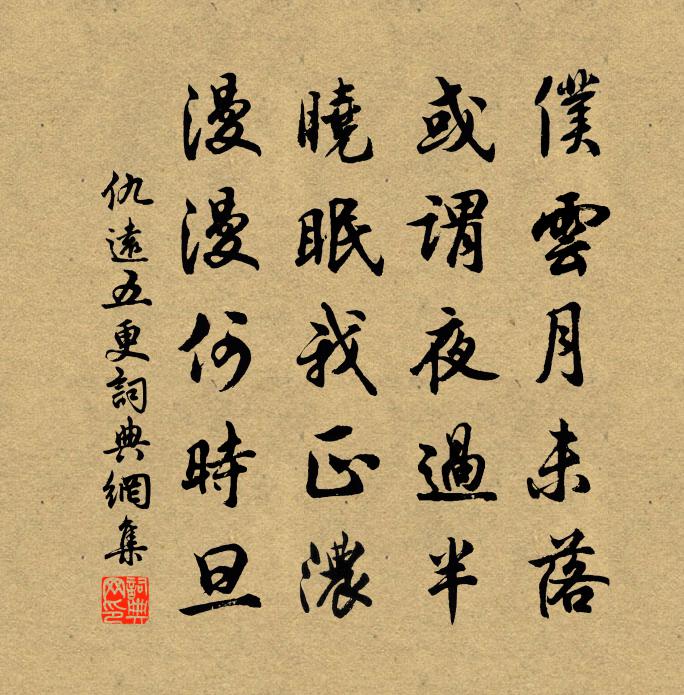 僕雲月未落
或謂夜過半
曉眠我正濃
漫漫何時旦
仇遠五更詞典網集
詞典網印